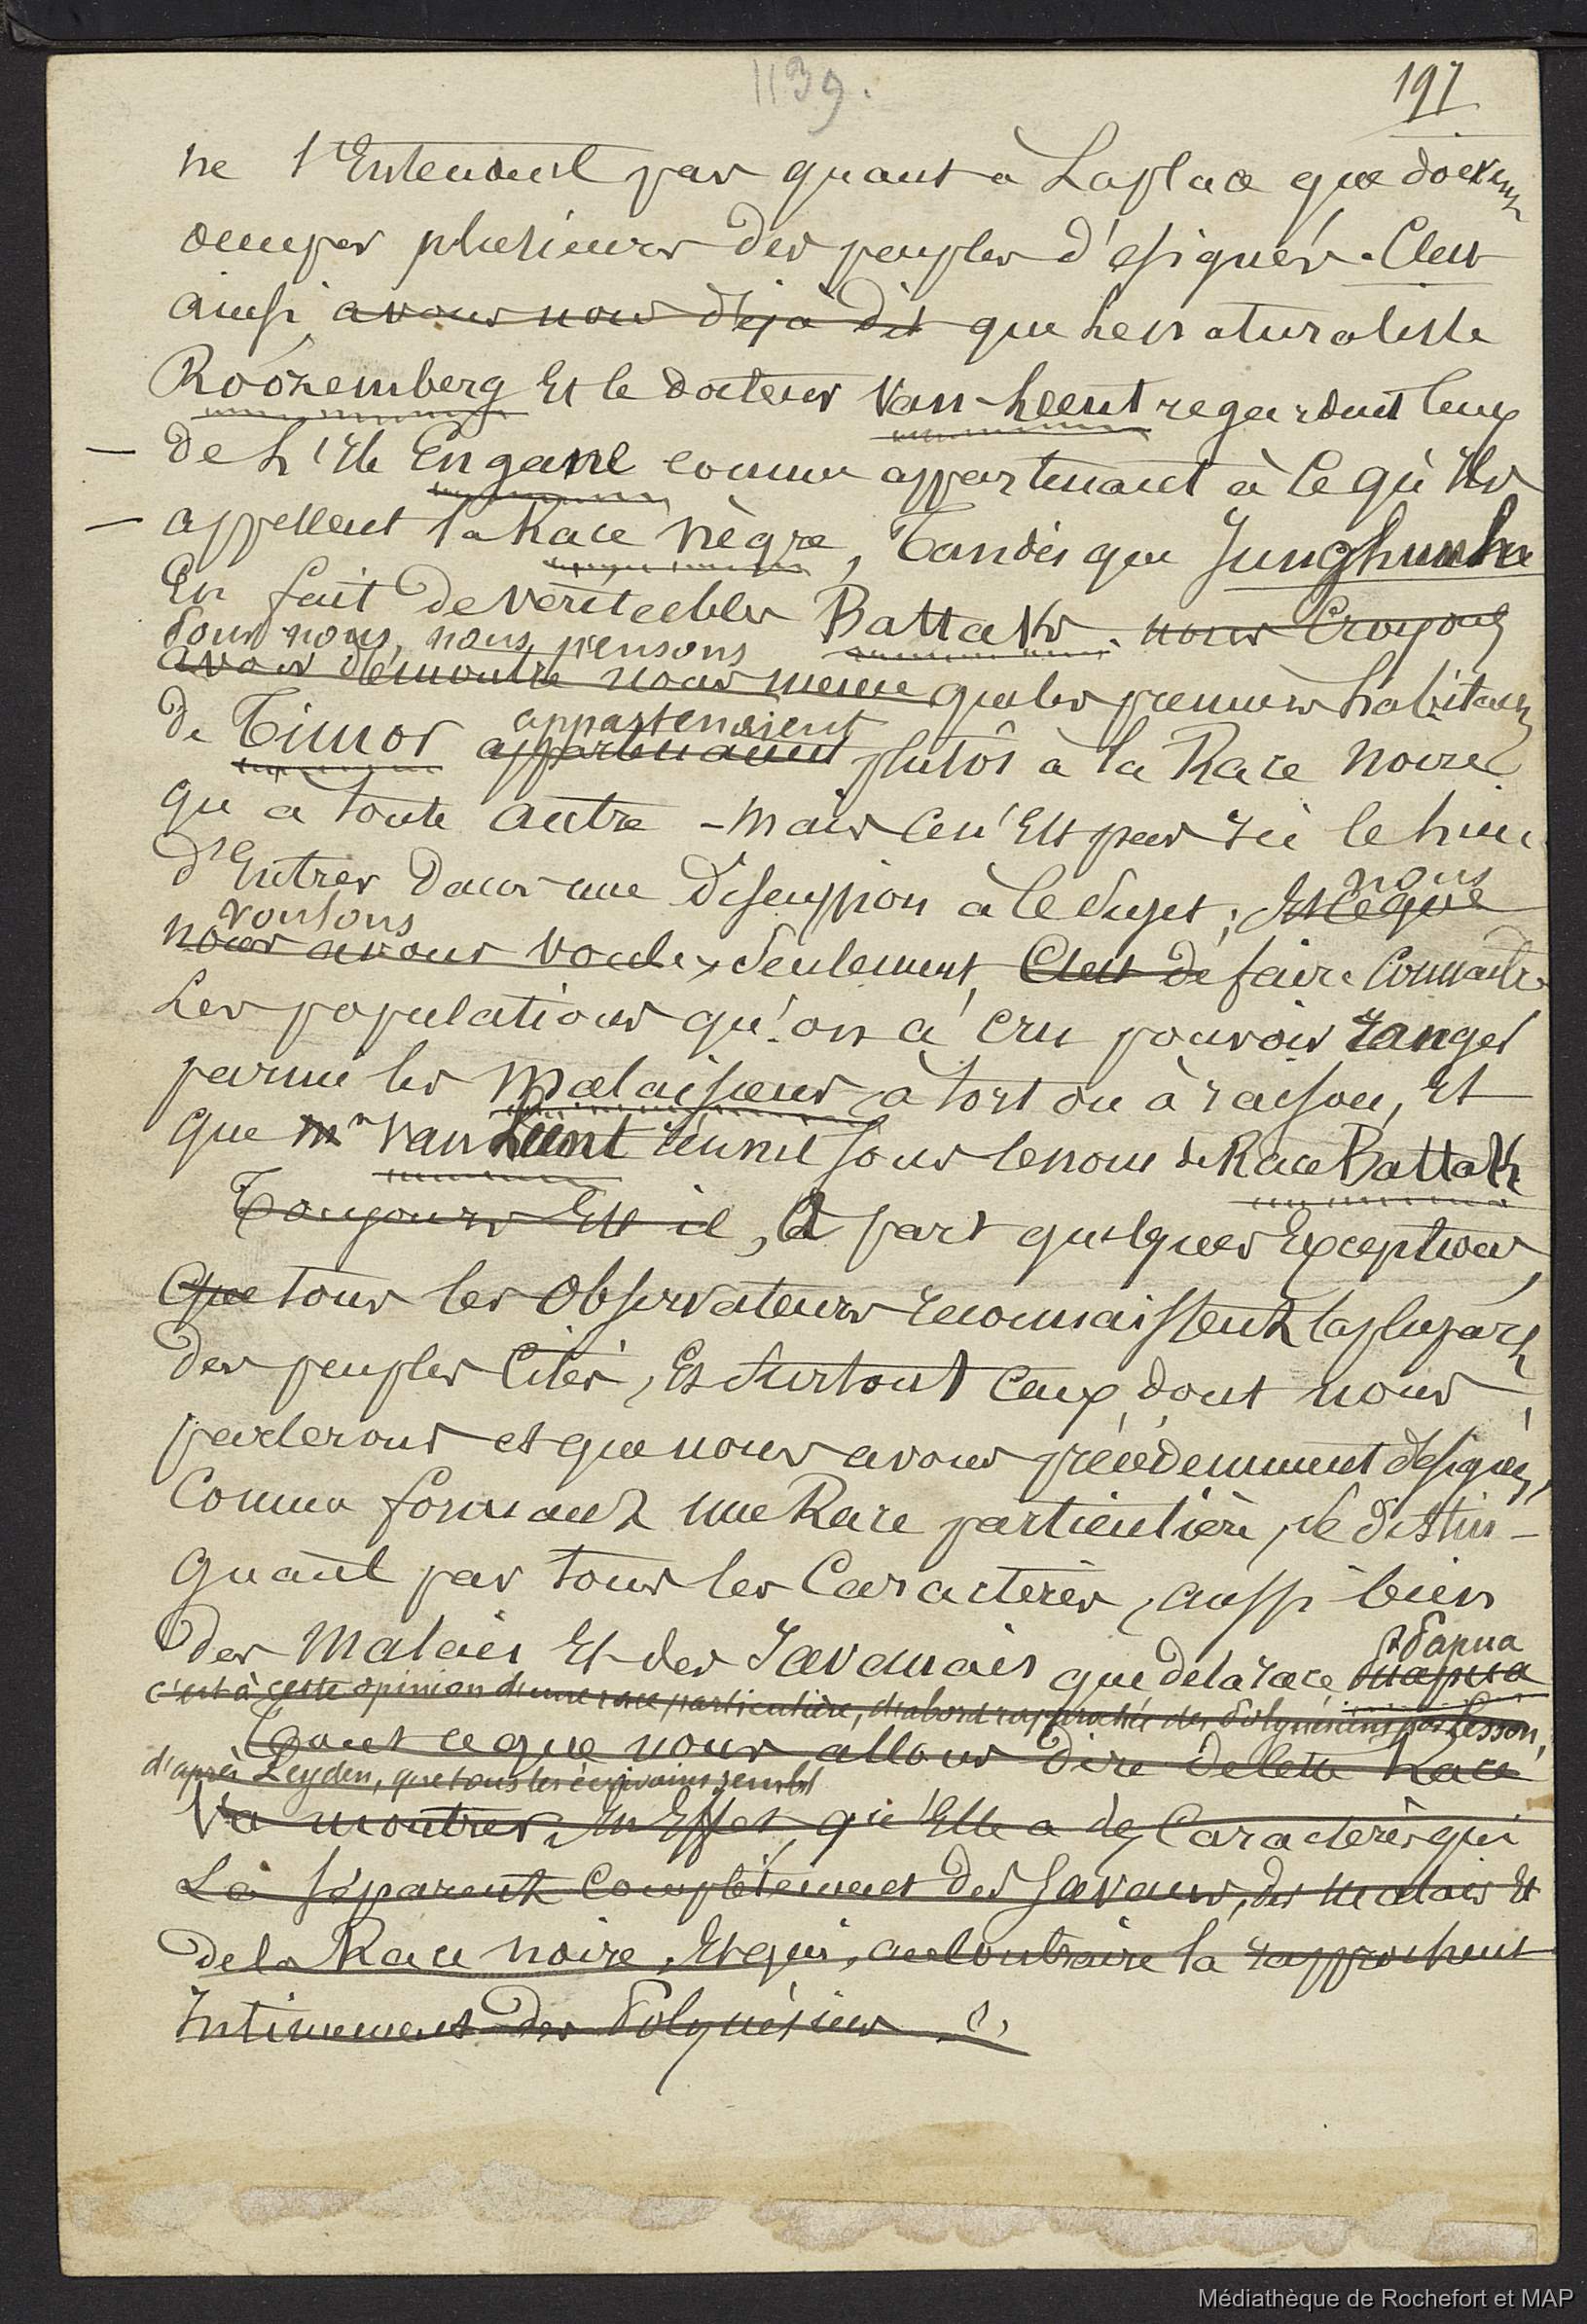 1139.
197
ne s'Entendent pas quant à La place que doivent
occuper plusieurs des peuples d'ésignés. C'est
ainsi avons nous déjà dit que les naturaliste
Roosemberg Et le docteur Van-Leent regardent ceux
— De L'Ile Engane comme appartenant à Ce qu'Ils
— appellent la Race nègre, Tandis que Junghunhn
En fait De véritables Battaks. nous Croyons
Pour nous, nous pensons
avoir démontré nous meme que les premiers habitans
appartenaient
De Timor appartenaient plutôt à la Race noire
qu'à toute autre - mais ce n'Est pas Ici le lieu
D'Entrer Dans une Discussion à Ce Sujet; Et Ce que
nous
voulons
nous avons voulu, Seulement, C'est de faire Connaitre
Les populations qu'on a cru pouvoir ranger
parmi les Malaisiens à tort ou à raison, Et
que Mr Van Leent réunit sous le nom de Race Battak
Toujours Est il, A part quelques Exceptions,
Que tous les Observateurs reconnaissent la plupart
Des peuples Cités, Et Surtout Ceux dont nous
parlerons et que nous avons précédemment désignés,
Comme formant une Race particulière, se distin-
guant par tous les Caractères, aussi bien
Des Malais Et des Javanais que de la race Papua
Papua
c'est à cette opinion d'une race particulière, d'abord rapprochée des Polynésiens par Lesson,
Tout ce que nous allons dire de cette Race
d'après Leyden, que tous les écrivains semblent
Va montrer, En Effet, qu'Elle a des Caractères qui
La séparent Complètement des Javans, des Malais Et
de la Race noire, Et qui, au Contraire la rapprochent
Intimement des Polynésiens.
Médiathèque de Rochefort et MAP